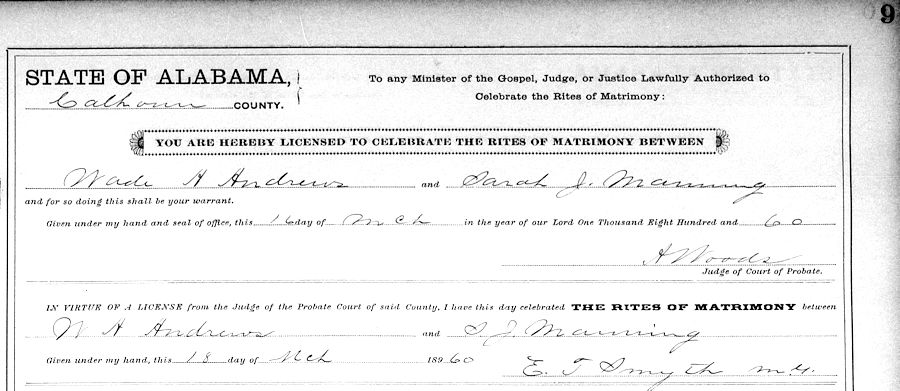 9
STATE OF ALABAMA, To any Minister of the Gospel, Judge, or Justice Lawfully Authorized to
Calhoun COUNTY. Celebrate the Rites of Matrimony:
YOU ARE HEREBY LICENSED TO CELEBRATE THE RITES OF MATRIMONY BETWEEN
Wade A Andrews and Sarah J. Manning
and for so doing this shall be your warrant.
Given under my hand and seal of office, this 16 day of Mch in the year of our Lord One Thousand Eight Hundred and 60
A Woods
Judge of Court of Probate.
IN VIRTUE OF A LICENSE from the Judge of the Probate Court of said County, I have this day celebrated THE RITES OF MATRIMONY between
W A Andrews and S J. Manning
Given under my hand, this 18 day of Mch 18960
E. T Smyth M.G.